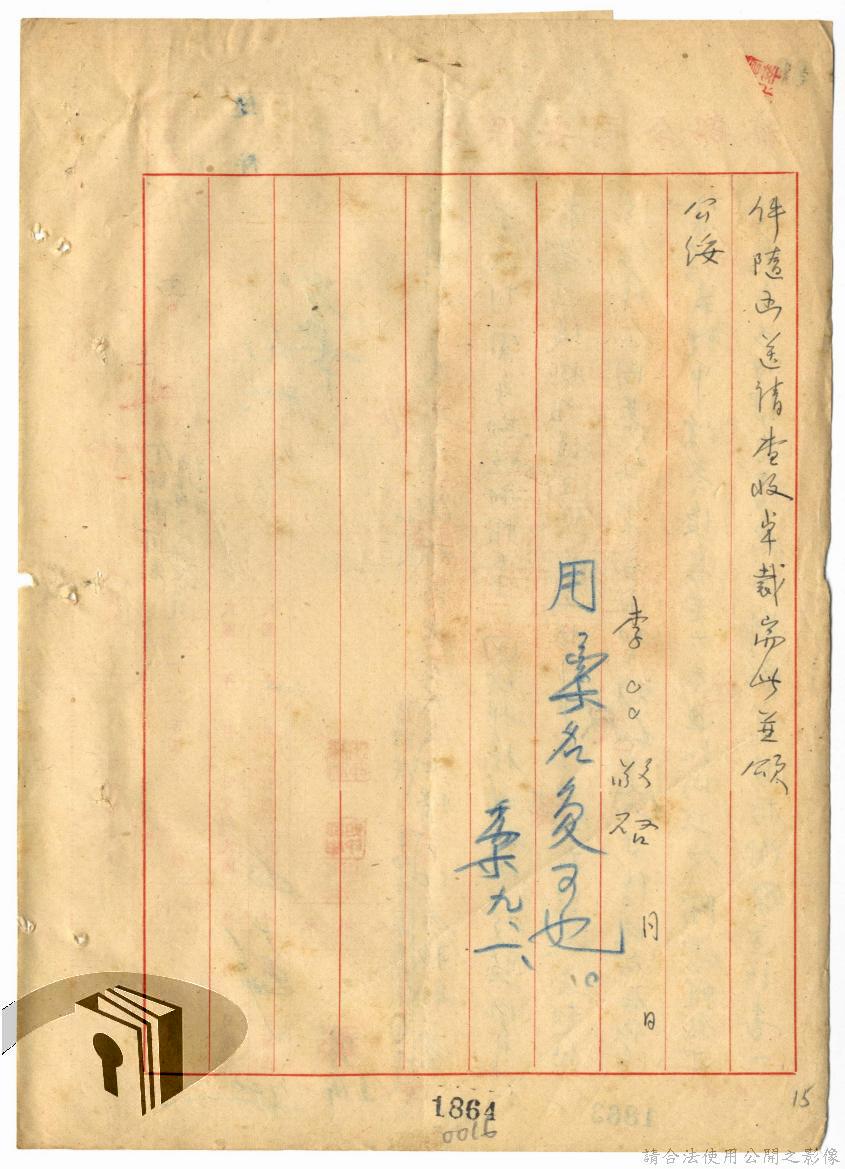 件隨函送請查收卓裁耑此並頌
公綏
李○○敬啓 月 日
用柔名復可也。
柔九、一、
1864
9100
15
請合法使用公開之影像